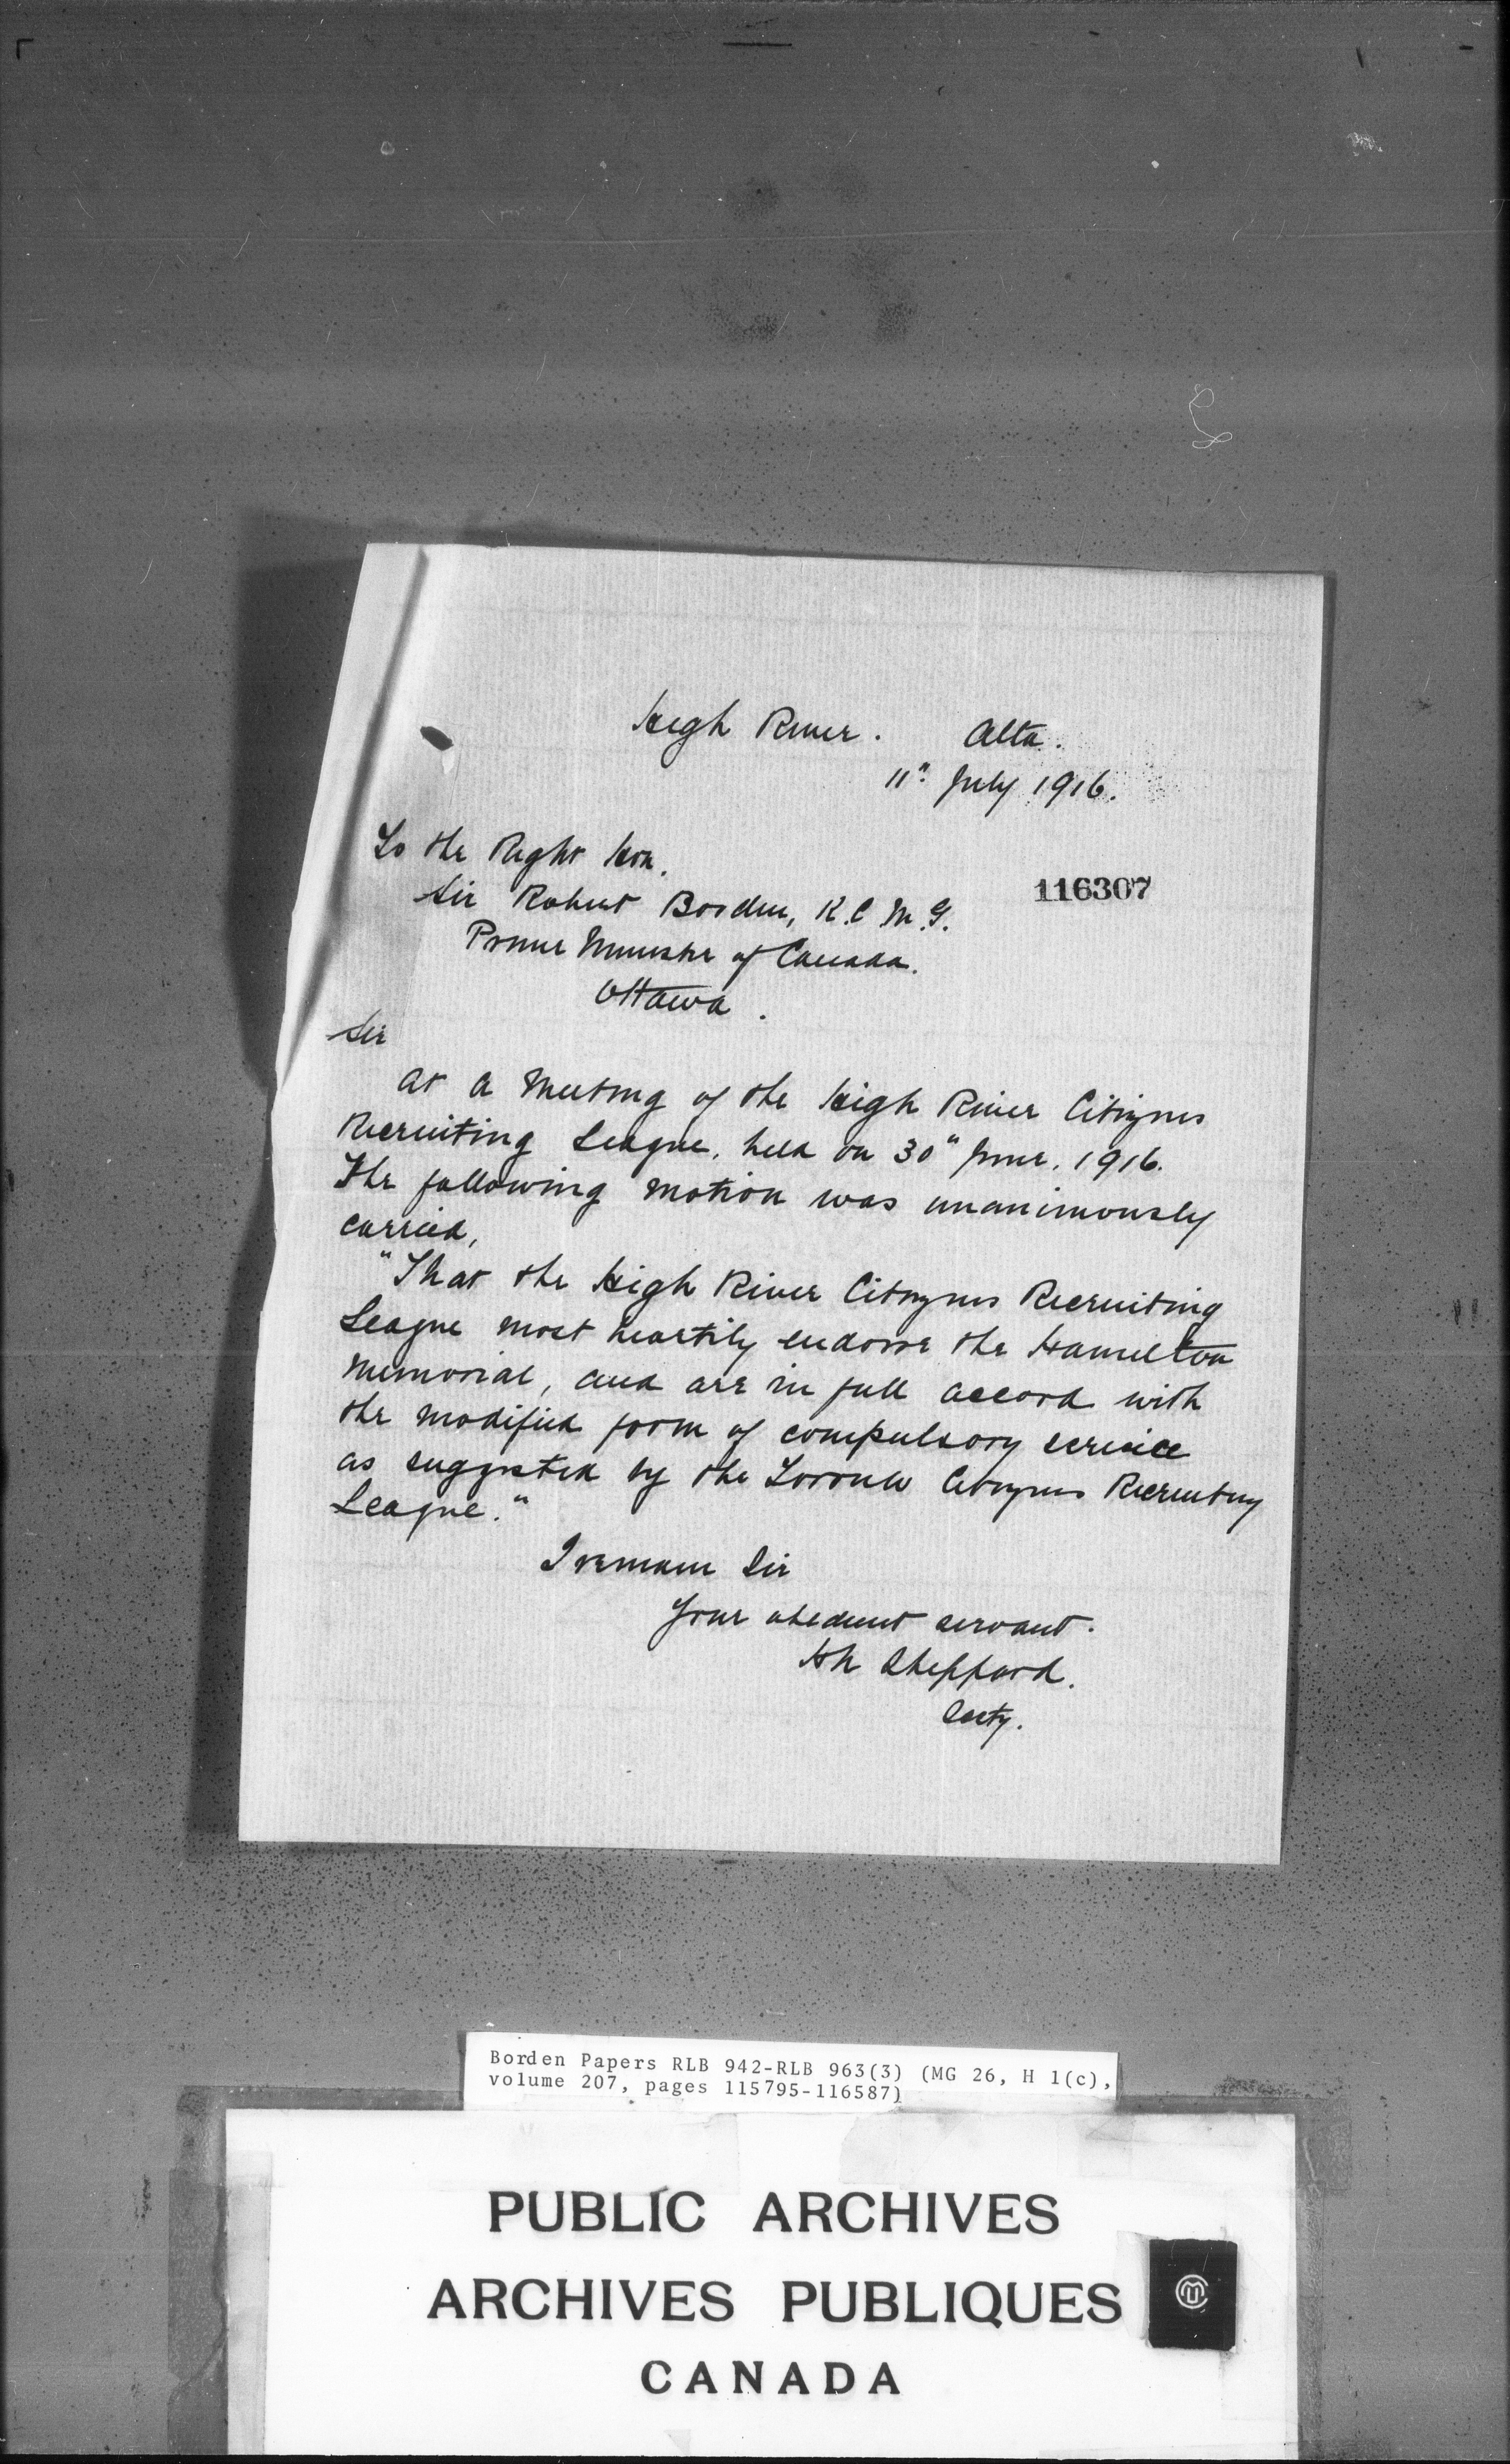 High River. Alta.
11" July 1916.
To the Right Hon.
Sir Robert Borden, K.C.M.G.
116307
Prime Minister of Canada.
Ottawa.
Sir
At a Meeting of the High River Citizens
Recruiting League, held on 30" June, 1916.
The following motion was unanimously
carried,
"That the High River Citizens Recruiting
League most heartily endorse the Hamilton
Memorial, and are in full accord with
the modified form of compulsory service
as suggested by the Toronto Citizens Recruiting
League."
I remain Sir
Your obedient servant.
Sheppard.
Secty.
Borden Papers RLB 942-RLB 963(3) (MG 26, H 1(c),
volume 207, pages 115795-116587)
PUBLIC ARCHIVES
ARCHIVES PUBLIQUES
CANADA